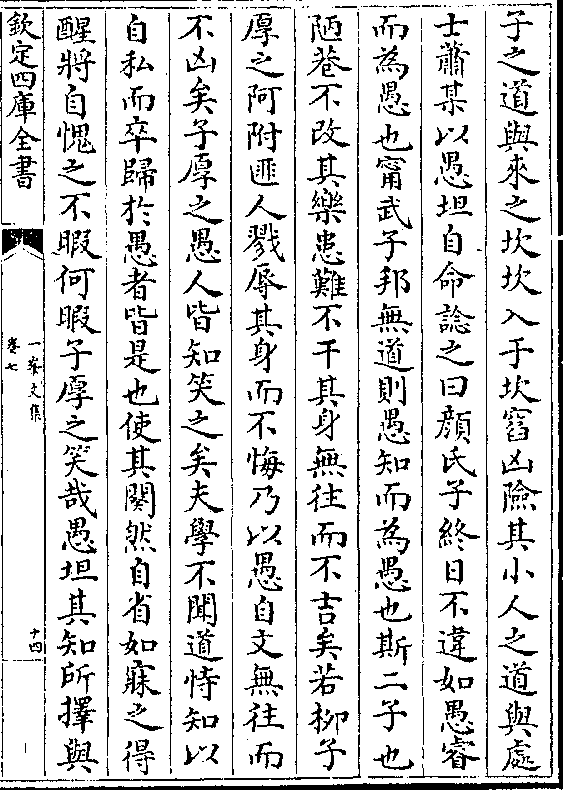 子之道與來之坎坎入于坎窞凶險其小人之道與處
士蕭某以愚坦自命諗之曰顏氏子終日不違如愚睿
而為愚也甯武子邦無道則愚知而為愚也斯二子也
陋巷不改其樂患難不干其身無往而不吉矣若柳子
厚之阿附匪人戮辱其身而不悔乃以愚自文無往而
不凶矣子厚之愚人皆知笑之矣夫學不聞道恃知以
自私而卒歸於愚者皆是也使其闃然自省如寐之得
醒將自愧之不暇何暇子厚之笑哉愚坦其知所擇與
欽定四庫全書
一峯文集
卷七
十四